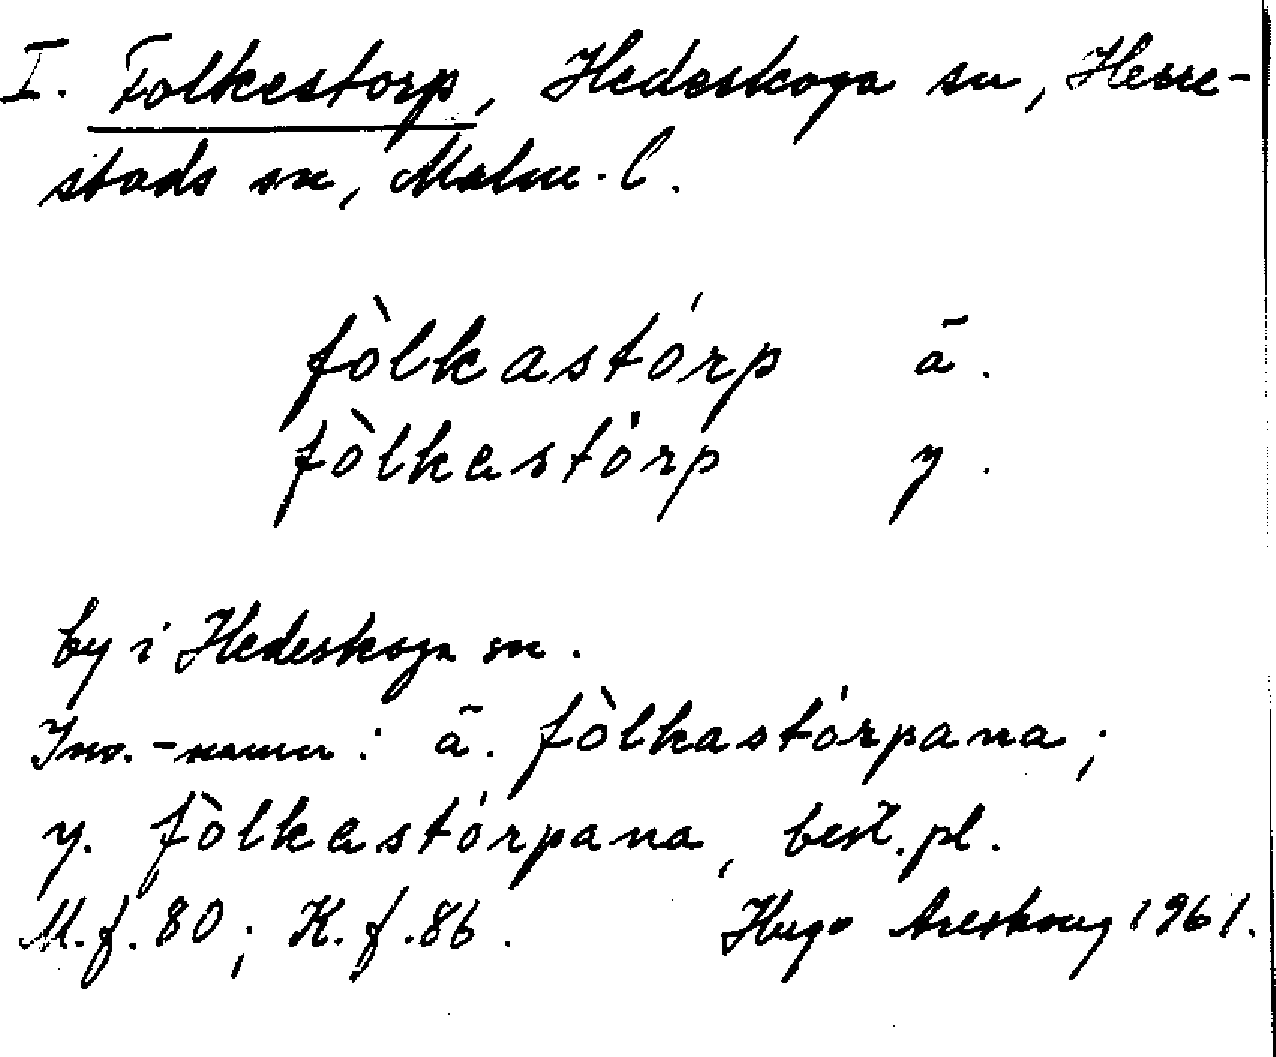 I. Folkestorp, Hedeskoga sn, Herre-
stads sn, Malm. l.
fòlkastórp ä.
fòlkastórp y.
by i Hedeskoga sn.
Inv.-namn: ä. fòlkastórpana;
y. fòlkastórpana, best. pl.
M. f. 80; K. f. 86. Hugo Areskoug 1961.